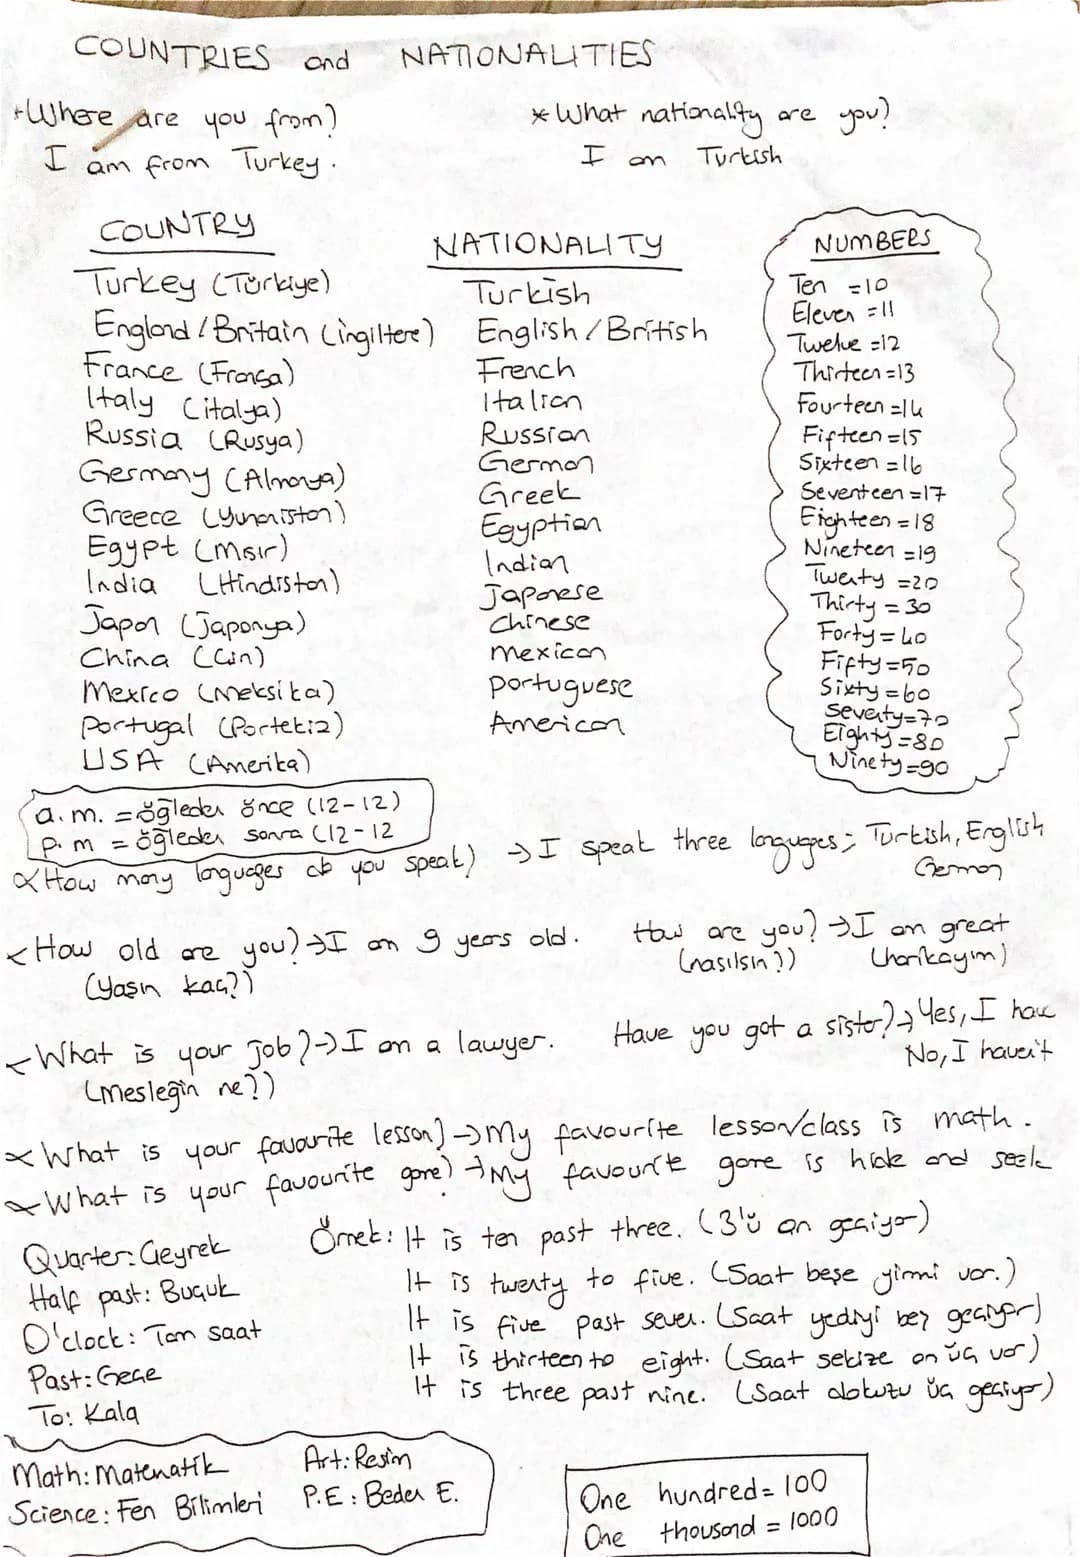 COUNTRIES and NATIONALITIES
Where are you from?
I am from Turkey.
* What nationality are you?
I am Turkish
COUNTRY
Turkey (Türkiye)
England / Britain (ingiltere)
France (Fransa)
Italy (italya)
Russia (Rusya)
Germany (Almanya)
Greece (Yunanistan)
Egypt (Mısır)
India (Hindistan)
Japan (Japonya)
China (Çin)
Mexico (Meksika)
Portugal (Portekiz)
USA (Amerika)
NATIONALITY
Turkish
English / British
French
Italian
Russian
German
Greek
Egyptian
Indian
Japanese
Chinese
Mexican
Portuguese
American
NUMBERS
Ten = 10
Eleven = 11
Twelve = 12
Thirteen = 13
Fourteen = 14
Fifteen = 15
Sixteen = 16
Seventeen = 17
Eighteen = 18
Nineteen = 19
Twenty = 20
Thirty = 30
Forty = 40
Fifty = 50
Sixty = 60
Seventy = 70
Eighty = 80
Ninety = 90
a.m. = öğleden önce (12-12)
p.m = öğleden sonra (12-12
How many languages do you speak? → I speak three languages; Turkish, English
German
How old are you? → I am 9 years old. How are you? → I am great
(Yaşın kaç?) (nasılsın?) (harikayım)
What is your job? → I am a lawyer. Have you got a sister? → Yes, I have
(mesleğin ne?) No, I haven't
What is your favourite lesson? → My favourite lesson/class is math.
What is your favourite game? → My favourite game is hide and seek
Quarter: Çeyrek
Half past: Buçuk
O'clock: Tam saat
Past: Geçe
To: Kala
Örnek: It is ten past three. (3'ü on geçiyor)
It is twenty to five. (Saat beşe yirmi var.)
It is five past seven. (Saat yediyi beş geçiyor)
It is thirteen to eight. (Saat sekize on üç var)
It is three past nine. (Saat dokuzu üç geçiyor)
Math: Matematik Art: Resim
Science: Fen Bilimleri P.E: Beden E.
One hundred = 100
One thousand = 1000